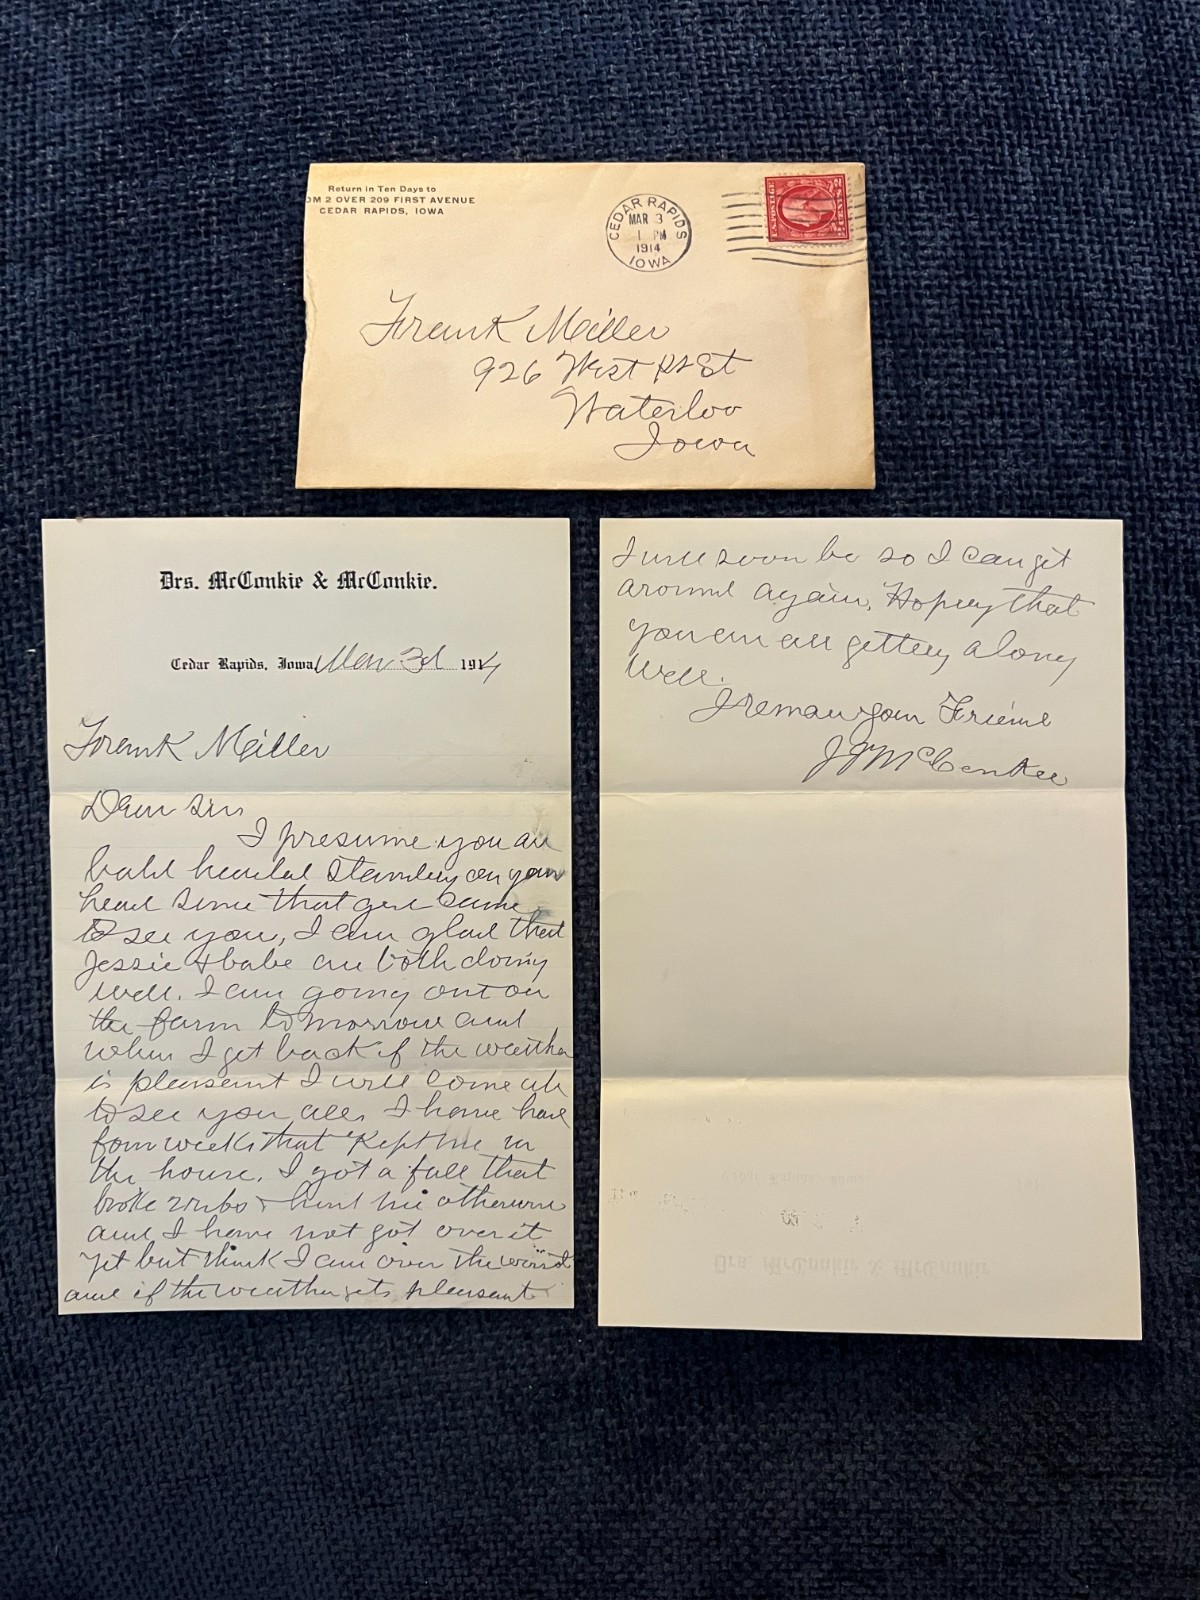 Return in Ten Days to
OM 2 OVER 209 FIRST AVENUE
CEDAR RAPIDS, IOWA
CEDAR RAPIDS
MAR 3
1 PM
1914
IOWA
U.S. POSTAGE
2 CENTS 2
Frank Miller
926 West St
Waterloo
Iowa
Drs. McConkie & McConkie.
Cedar Rapids, Iowa, Mar 3d 1914
Frank Miller
Dear Sir
I presume you are
bald headed standing on your
head since that girl came
to see you, I am glad that
Jessie & babe are both doing
well. I am going out on
the farm tomorrow and
when I get back if the weather
is pleasant I will come up
to see you all, I have had
four weeks that kept me in
the house. I got a fall that
broke 2 ribs & hurt me otherwise
and I have not got over it
yet but think I am over the worst
and if the weather gets pleasant
I will soon be so I can get
around again. Hoping that
you are all getting along
well.
I remain your Friend
J McConkie
Cedar Rapids, Iowa
191
Drs. McConkie & McConkie